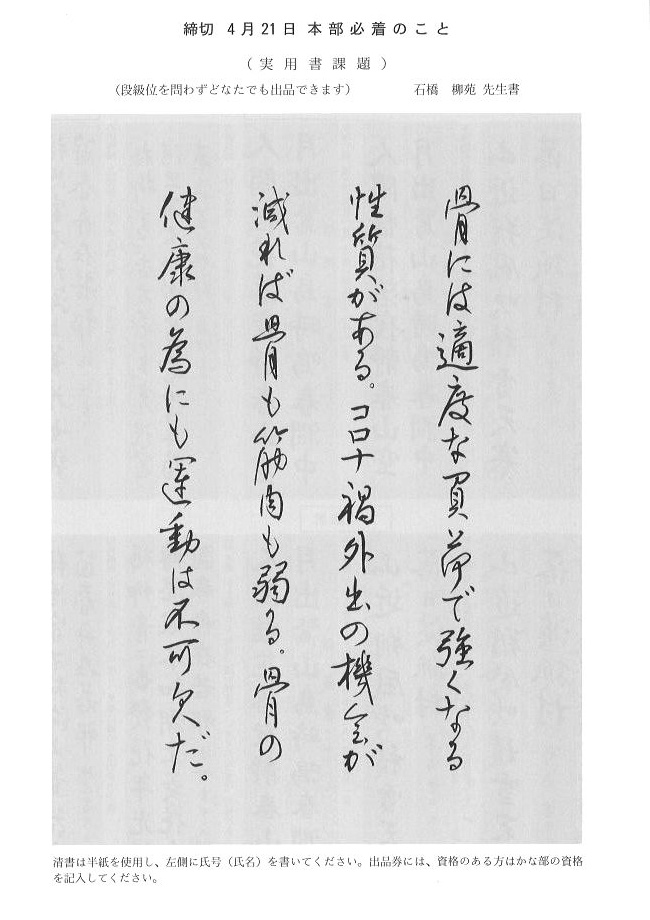 締切 4月21日 本部必着のこと
（実用書課題）
（段級位を問わずどなたでも出品できます） 石橋 柳苑 先生書
骨には適度な負荷で強くなる
性質がある。コロナ禍外出の機会が
減れば骨も筋肉も弱る。骨の
健康の為にも運動は不可欠だ。
清書は半紙を使用し、左側に氏号（氏名）を書いてください。出品券には、資格のある方はかな部の資格
を記入してください。